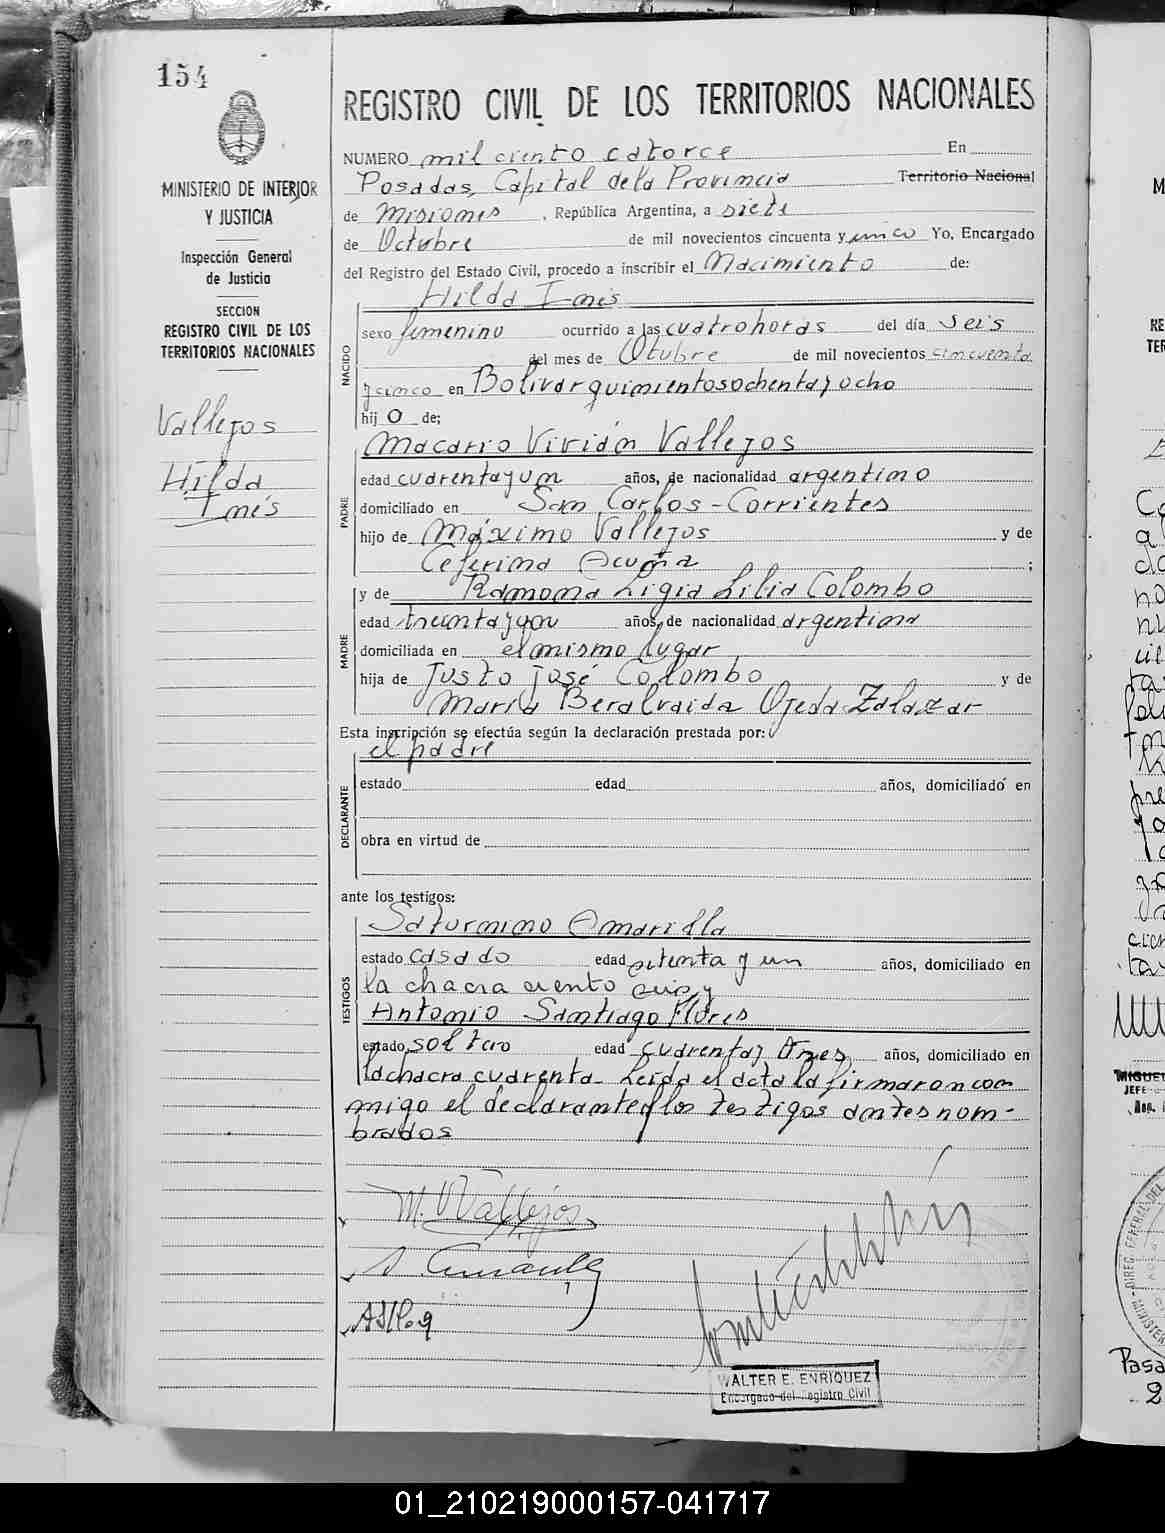 154
MINISTERIO DE INTERIOR
Y JUSTICIA
Inspección General
de Justicia
SECCION
REGISTRO CIVIL DE LOS
TERRITORIOS NACIONALES
Vallejos
Hilda
Inés
REGISTRO CIVIL DE LOS TERRITORIOS NACIONALES
NUMERO mil ciento catorce En
Posadas, Capital de la Provincia Territorio Nacional
de Misiones, República Argentina, a siete
de Octubre de mil novecientos cincuenta y cinco Yo, Encargado
del Registro del Estado Civil, procedo a inscribir el Nacimiento de:
Hilda Inés
NACIDO
sexo femenino ocurrido a las cuatro horas del día seis
del mes de Otubre de mil novecientos cincuenta
y cinco en Bolivar quinientos ochenta y ocho
hij o de;
PADRE
Macario Vivián Vallejos
edad cuarenta y un años, de nacionalidad argentino
domiciliado en San Carlos - Corrientes
hijo de Máximo Vallejos y de
Ceferina Acuña ;
MADRE
y de Ramona Ligia Lilia Colombo
edad treinta y un años, de nacionalidad argentina
domiciliada en el mismo lugar
hija de Justo José Colombo y de
María Ojeda Zalazar
Esta inscripción se efectúa según la declaración prestada por:
el padre
DECLARANTE
estado edad años, domiciliado en
obra en virtud de
ante los testigos:
TESTIGOS
Saturnino Amarilla
estado casado edad y un años, domiciliado en
la chacra ciento
Antonio Santiago Flores
estado soltero edad cuarenta y tres años, domiciliado en
la chacra cuarenta - Leída el acta la firmaron con
migo el declarante y los testigos antes nom-
brados
M. V Vallejos
WALTER E. ENRIQUEZ
Encargado del Registro Civil
01_210219000157-041717